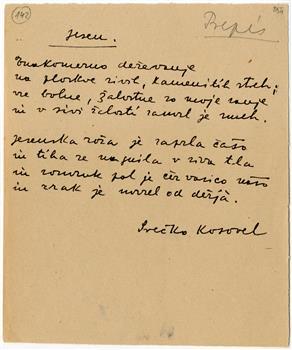 142
Prepis
Jesen.
Enakomerno deževanje
na ploskve sivih, kamenitih streh;
vse bolne, žalostne so moje sanje
in v sivi žalosti zamrl je smeh.
Jesenska roža je zaprla čašo
in tiha se nagnila v siva tla
in somrak pal je čez vasico našo
in zrak je mrzel od dežjà.
Srečko Kosovel